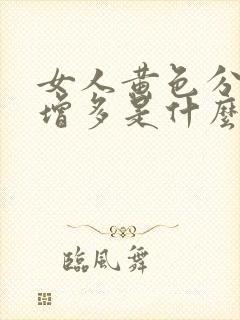 女人黄色分
增多是什麼
臨風舞